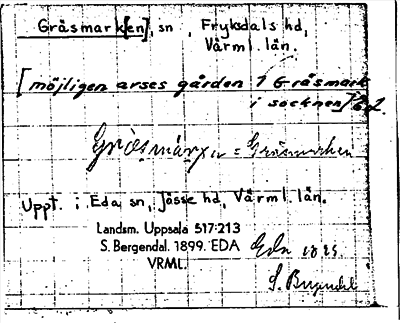 Gräsmark[en], sn, Fryksdals hd,
Värml. län.
[möjligen avses gården Gräsmark
i socknen]
= Gräsmarken
Uppt. i Eda sn, Jösse hd, Värml. län.
Landsm. Uppsala 517:213
S. Bergendal. 1899. EDA
VRML.
Eda
S. Bergendal